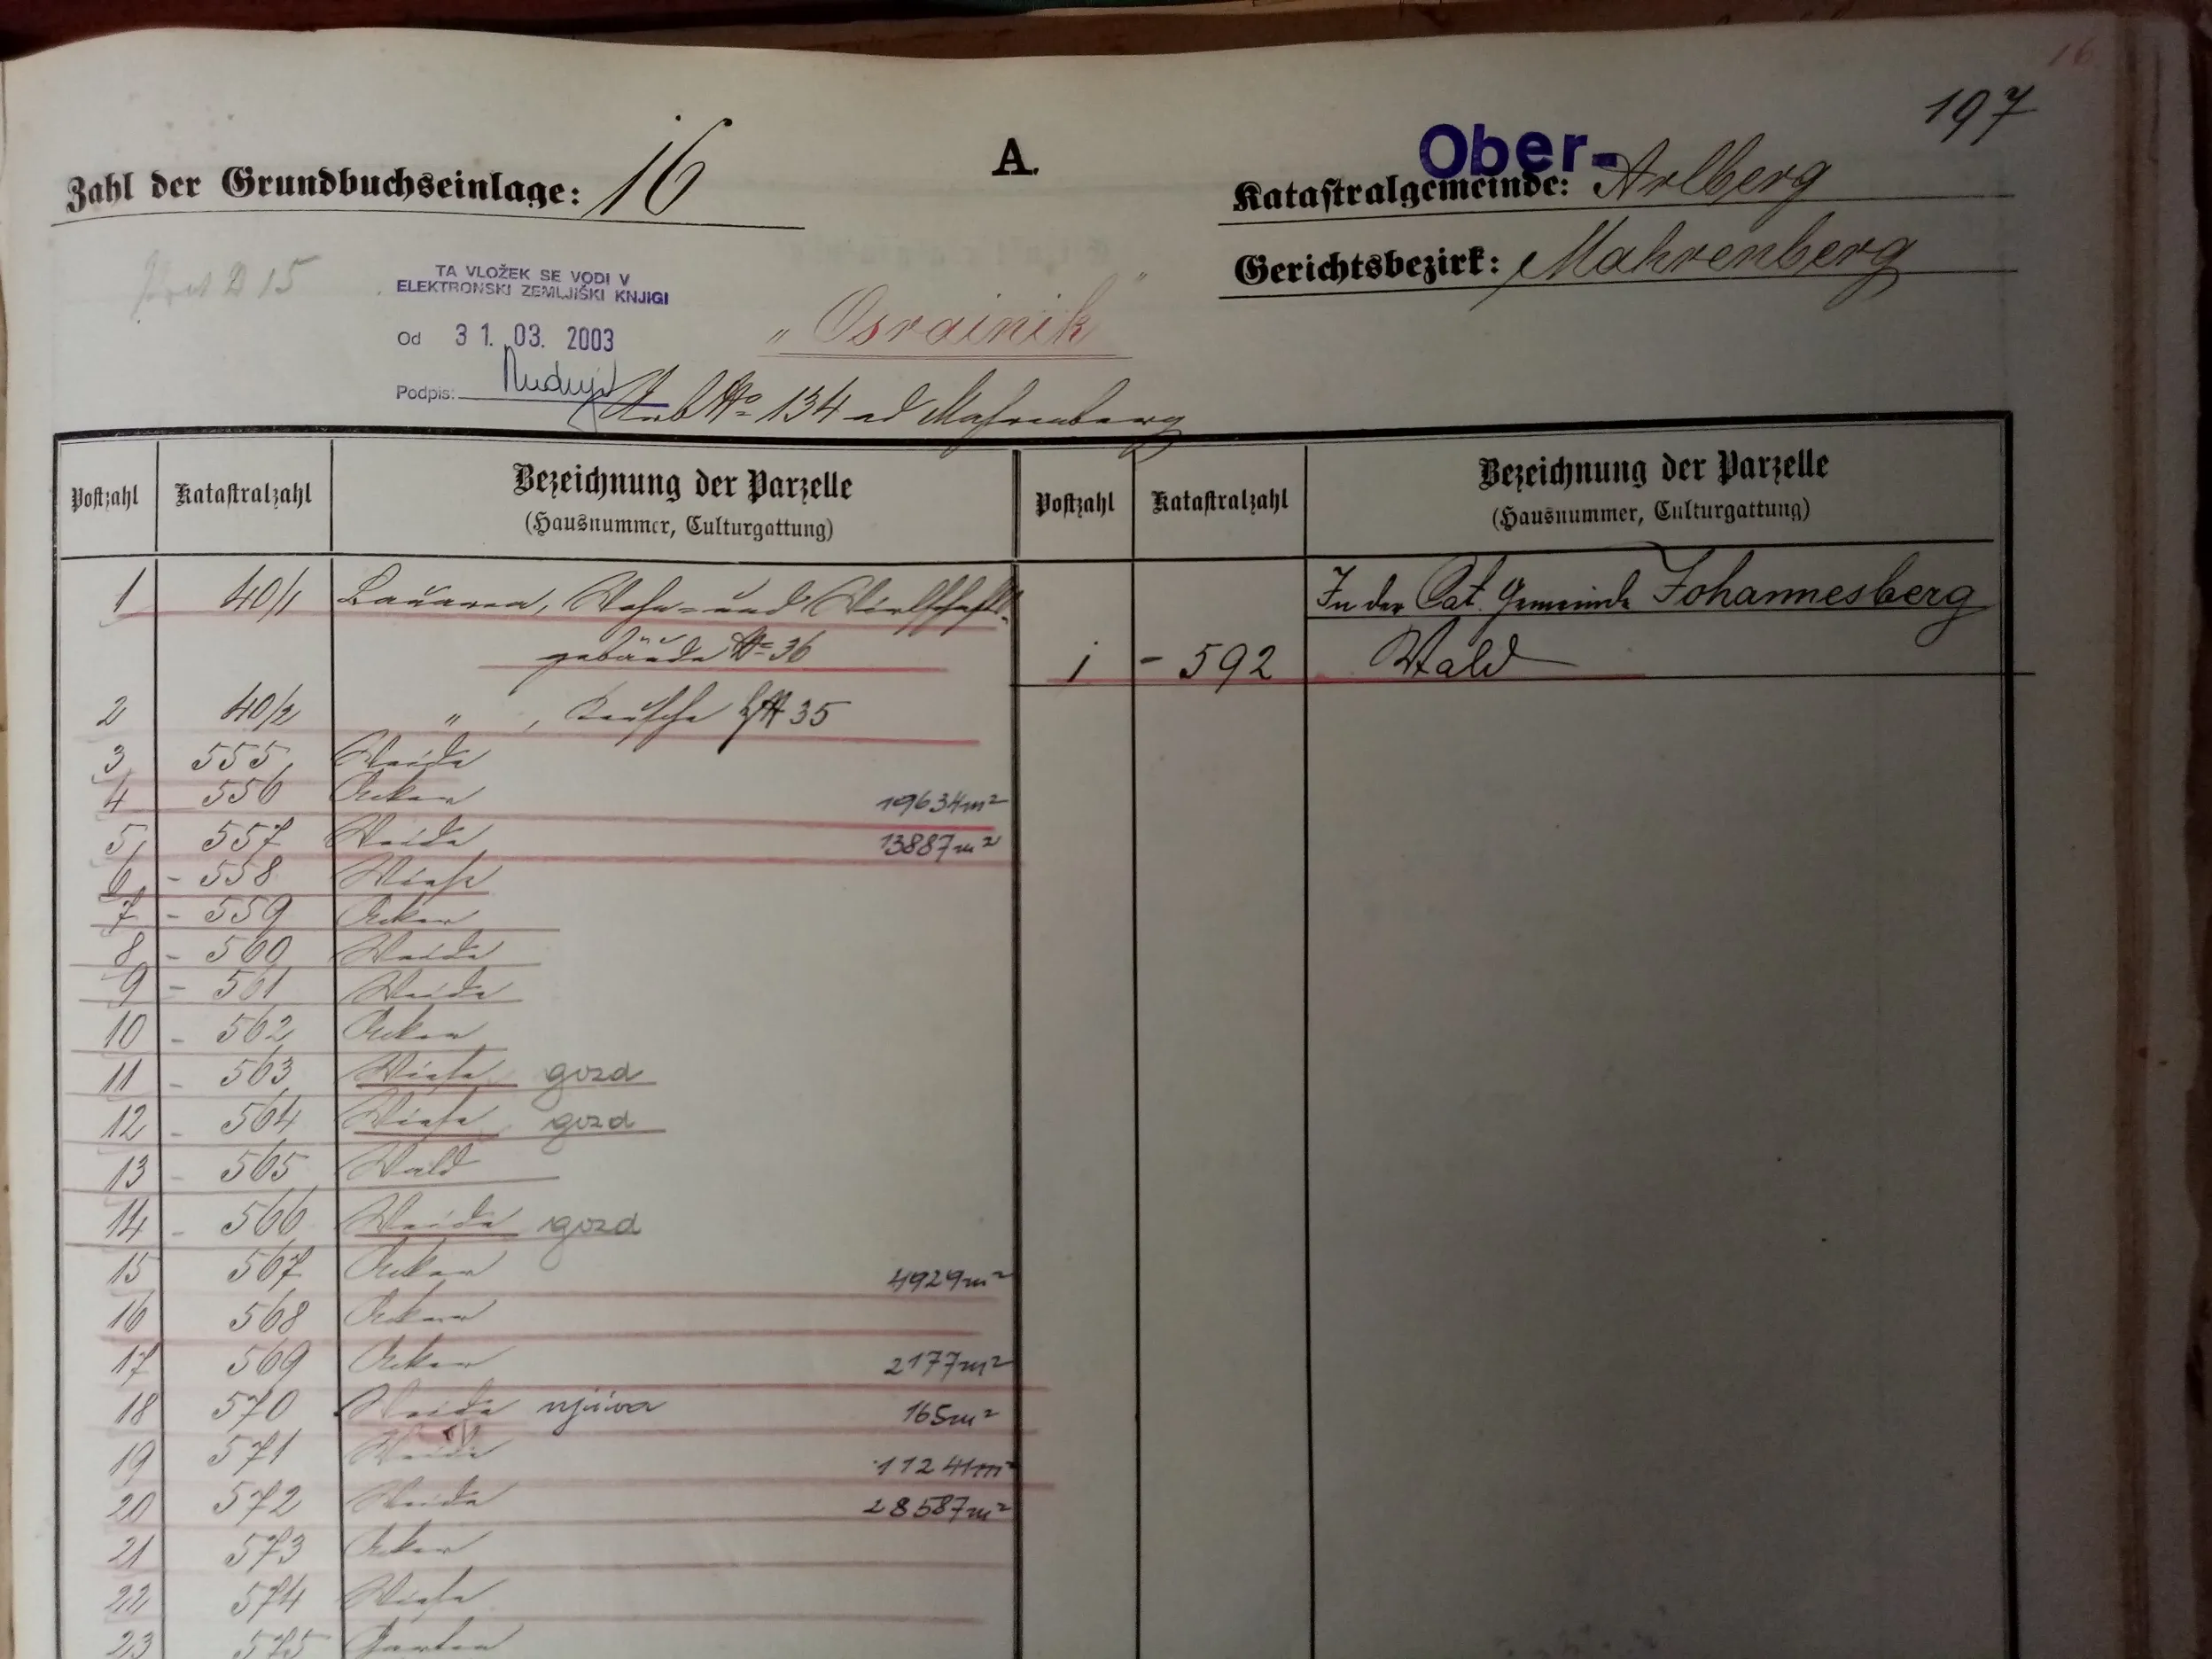 16
197
Zahl der Grundbuchseinlage: 16
A.
Ober-
Katastralgemeinde: Arlberg
Gerichtsbezirk: Mahrenberg
D 15
TA VLOŽEK SE VODI V
ELEKTRONSKI ZEMLJIŠKI KNJIGI
Od 31. 03. 2003
Podpis:
„Osrainik"
Urb № 134 ad Mahrenberg
Postzahl Katastralzahl Bezeichnung der Parzelle
(Hausnummer, Culturgattung)
Postzahl Katastralzahl Bezeichnung der Parzelle
(Hausnummer, Culturgattung)
1 40/1 Bauarea, Wohn- und Wirtschafts-
gebäude № 36
2 40/2 " , Keusche № 35
3 555 Weide
4 556 Acker 19634m²
5 557 Weide 13887m²
6 - 558 Wiese
7 - 559 Acker
8 - 560 Weide
9 - 561 Weide
10 - 562 Acker
11 - 563 Wiese gozd
12 - 564 Wiese gozd
13 - 565 Wald
14 - 566 Weide gozd
15 567 Acker 4929m²
16 568 Acker
17 569 Acker 2177m²
18 570 Weide njiva 165m²
19 571 Weide 11241m²
20 572 Weide 28587m²
21 573 Acker
22 574 Wiese
23 575 Garten
In der Cat. Gemeinde Johannesberg
1 - 592 Wald